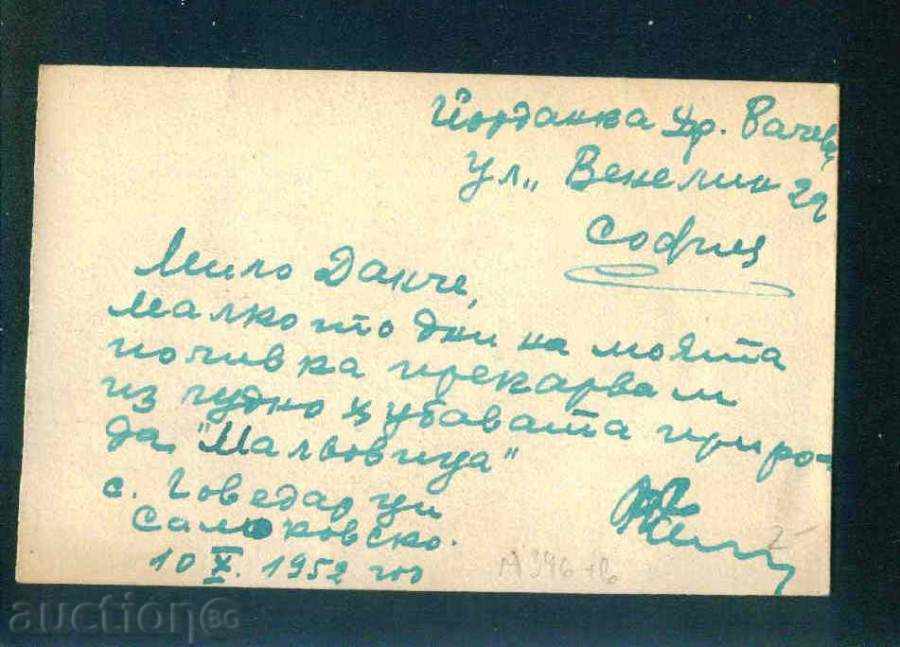 Йорданка Др. Вачева
ул. „Венелин 22
София
Мило Данче,
Малкото дни на моята
почивка прекарвам
из чудно хубавата приро-
да "Мальовица"
с. Говедарци
Самоковско.
10 X. 1952 год
А 396
auction BG